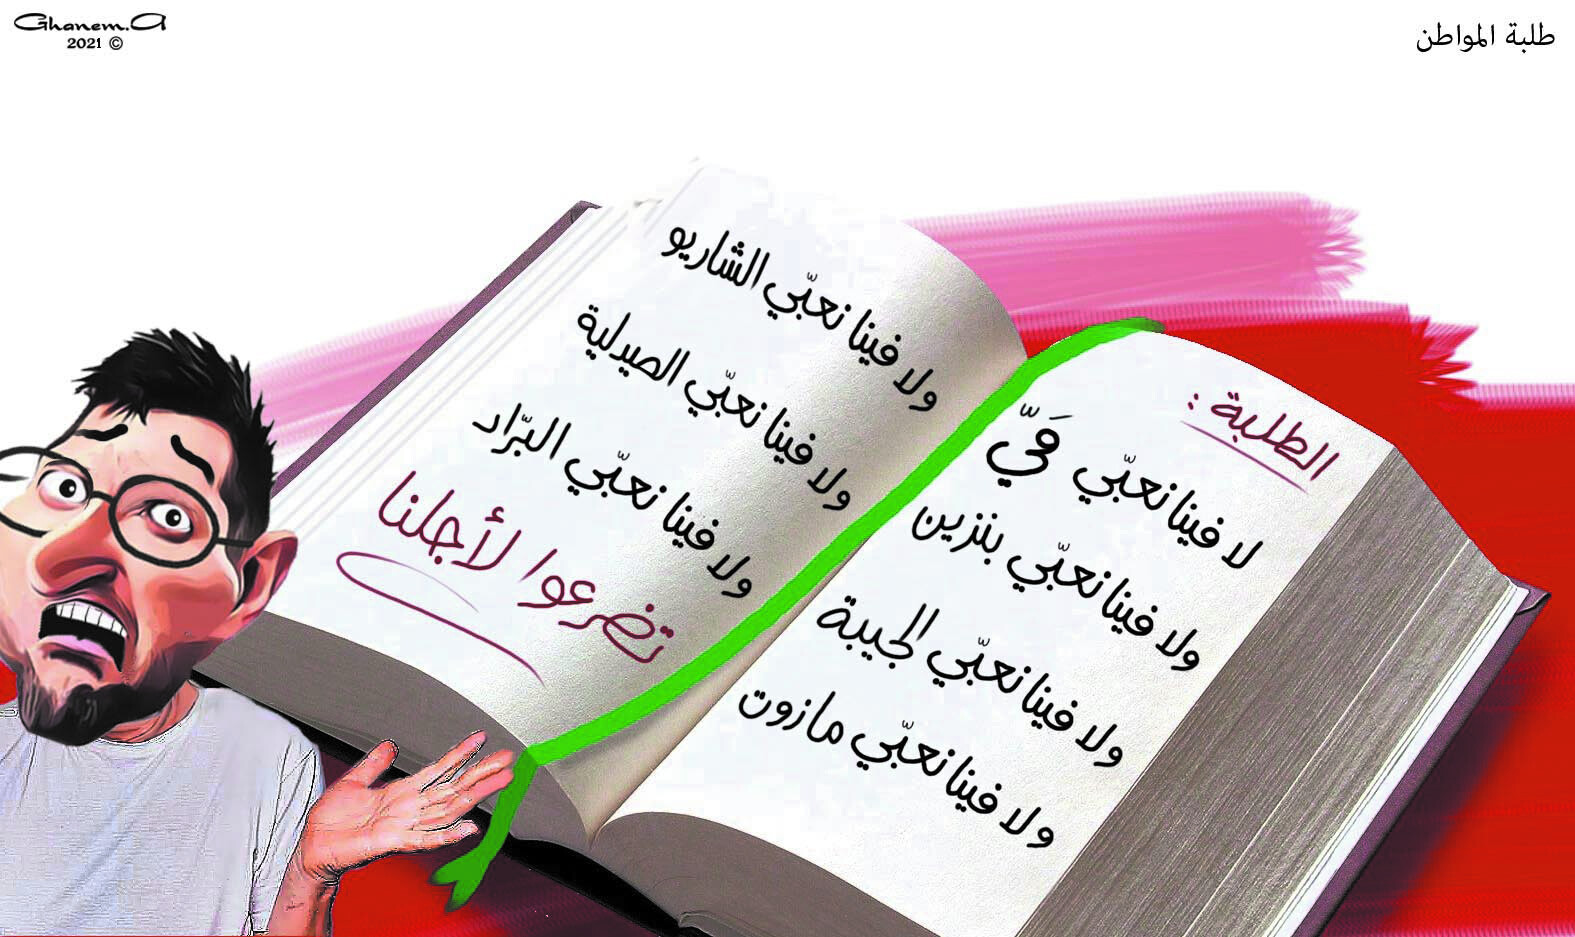 Ghanem.A
2021 ©
طلبة المواطن
الطلبة :
لا فينا نعبّي فَيّ
ولا فينا نعبّي بنزين
ولا فينا نعبّي الجيبة
ولا فينا نعبّي مازوت
ولا فينا نعبّي الشاريو
ولا فينا نعبّي الصيدلية
ولا فينا نعبّي البرّاد
تضرعوا لأجلنا